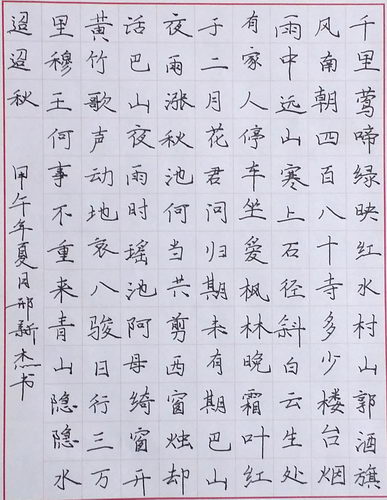 千里莺啼绿映红水村山郭酒旗
风南朝四百八十寺多少楼台烟
雨中远山寒上石径斜白云生处
有家人停车坐爱枫林晚霜叶红
于二月花君问归期未有期巴山
夜雨涨秋池何当共剪西窗烛却
话巴山夜雨时瑶池阿母绮窗开
黄竹歌声动地哀八骏日行三万
里穆王何事不重来青山隐隐水
迢迢秋 甲午年夏月邢新杰书